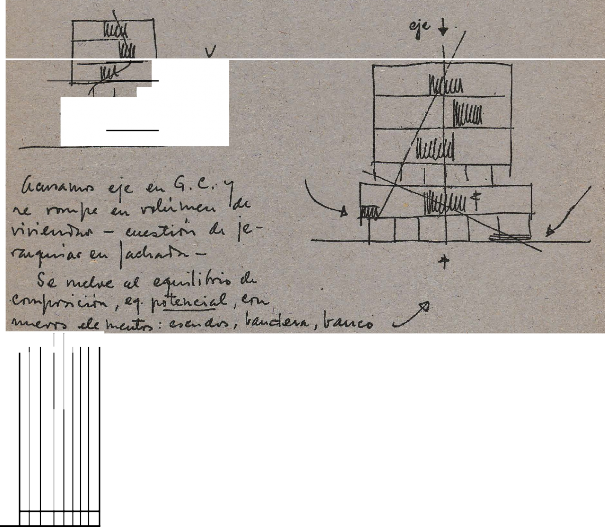 eje
Acusamos eje en G.C. y
se rompe en volúmen de
viviendas – cuestión de je-
rarquías en fachada –
Se vuelve al equilibrio de
composición, eq. potencial, con
nuevos elementos: escudos, bandera, banco